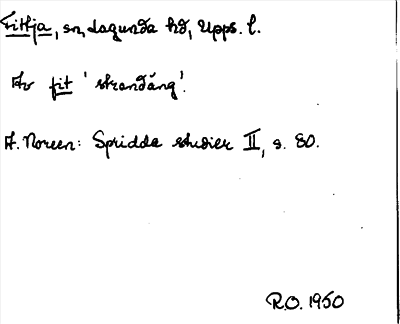 Fithja, sn, Lagunda hd, Upps. l.
Av fit 'strandäng'.
A. Noreen: Spridda studier II, s. 80.
R.O. 1950